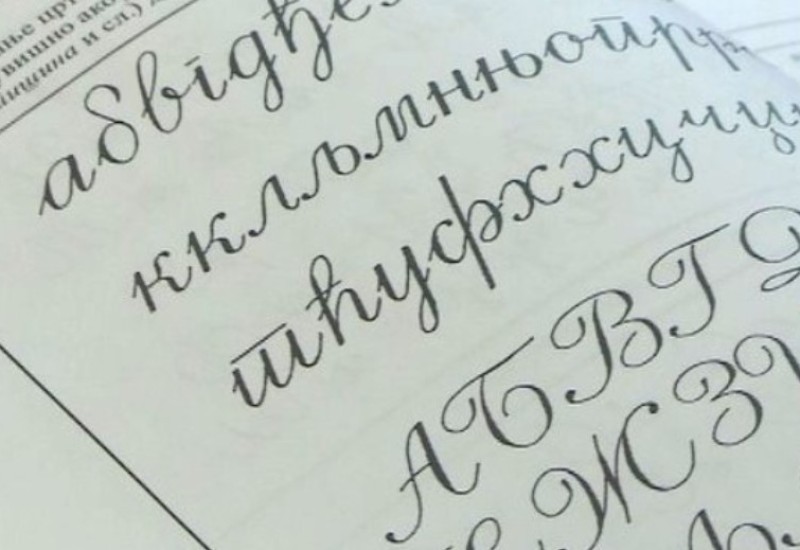 ње црт
увишно ако
лишшина и сл.)
абвгдђе
кклљмнњопрр
тћуфххцчџ
АБВГД
ЖЗ